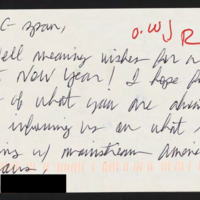 C-span,
O.W.J R
Well meaning wishes for a
New Year! I hope for
of what you are doing
informing us on what
w/ mainstream America